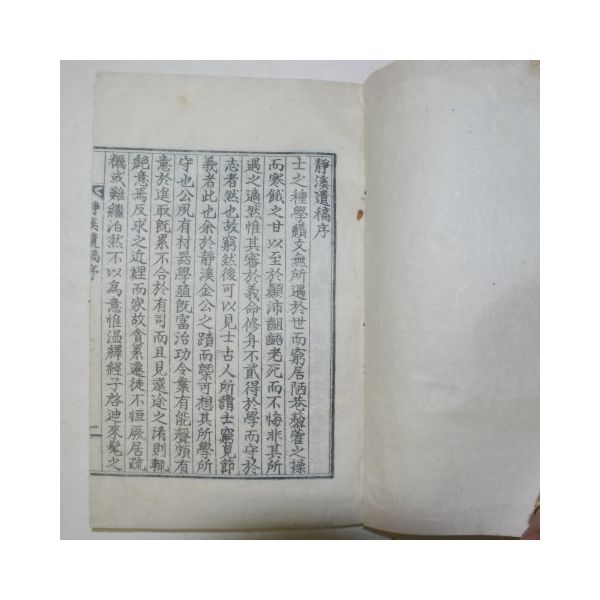 靜溪遺稿序
士之種學績文無所遇於世而窮居陋巷藜藿之操
而寒餓之甘以至於顚沛齟齬老死而不悔非其所
遇之適然惟其審於義命修身不貳得於學而守於
志者然也故窮然後可以見士古人所謂士窮見節
義者此也余於靜溪金公之蹟而槩可想其所學所
守也公夙有材器學殖旣富治功令業有能聲頗有
意於進取旣累不合於有司而且見塗之淆則輒
絶意焉反求之近裡而家故貧累遷徙不恒厥居疏
糲或難繼泊然不以爲意惟溫繹經子啓迪來髦之
靜溪遺稿序
一